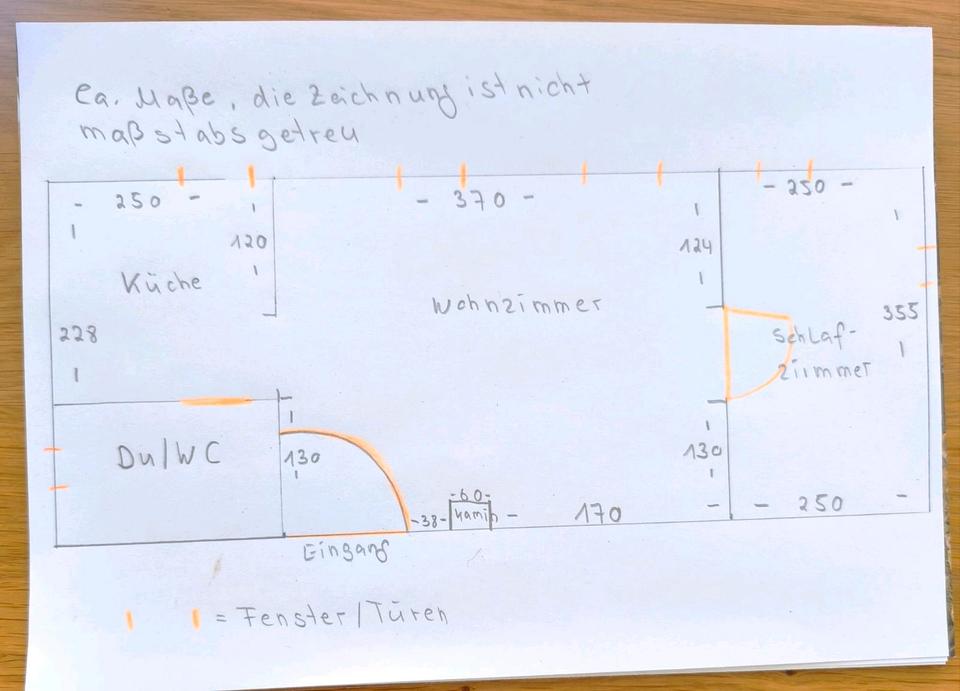 ca. Maße, die Zeichnung ist nicht
maßstabsgetreu
- 250 -
- 370 -
- 250 -
120
124
Küche
Wohnzimmer
228
355
Schlaf-
ziimmer
Du/WC
130
130
-60-
-38-
Kamin
- 170 -
- 250 -
Eingang
= Fenster/Türen